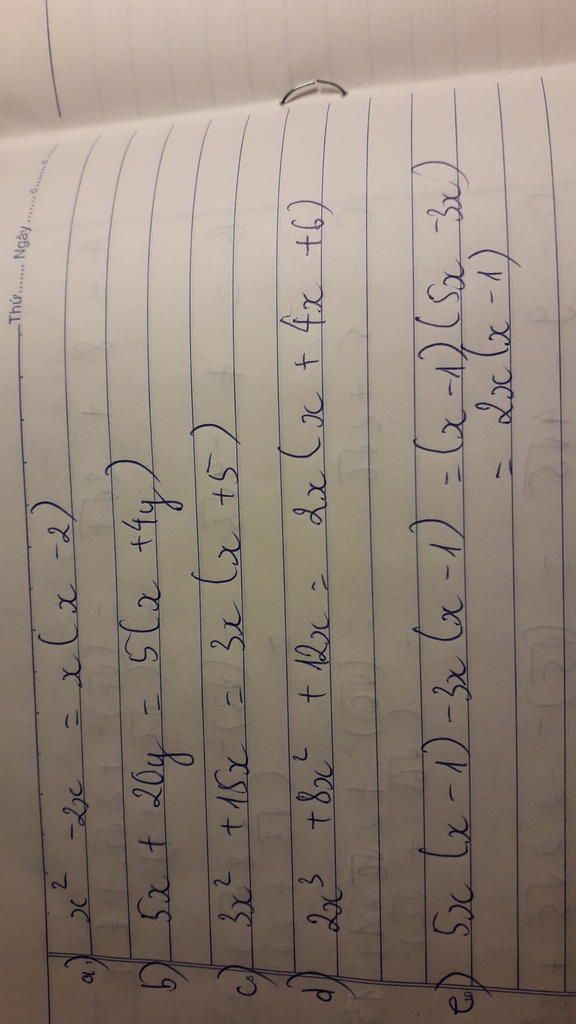 Thứ....... Ngày...........
a) x² - 2x = x(x - 2)
b) 5x + 20y = 5(x + 4y)
c) 3x² + 15x = 3x(x + 5)
d) 2x³ + 8x² + 12x = 2x(x + 4x + 6)
e) 5x(x - 1) - 3x(x - 1) = (x - 1)(5x - 3x)
= 2x(x - 1)